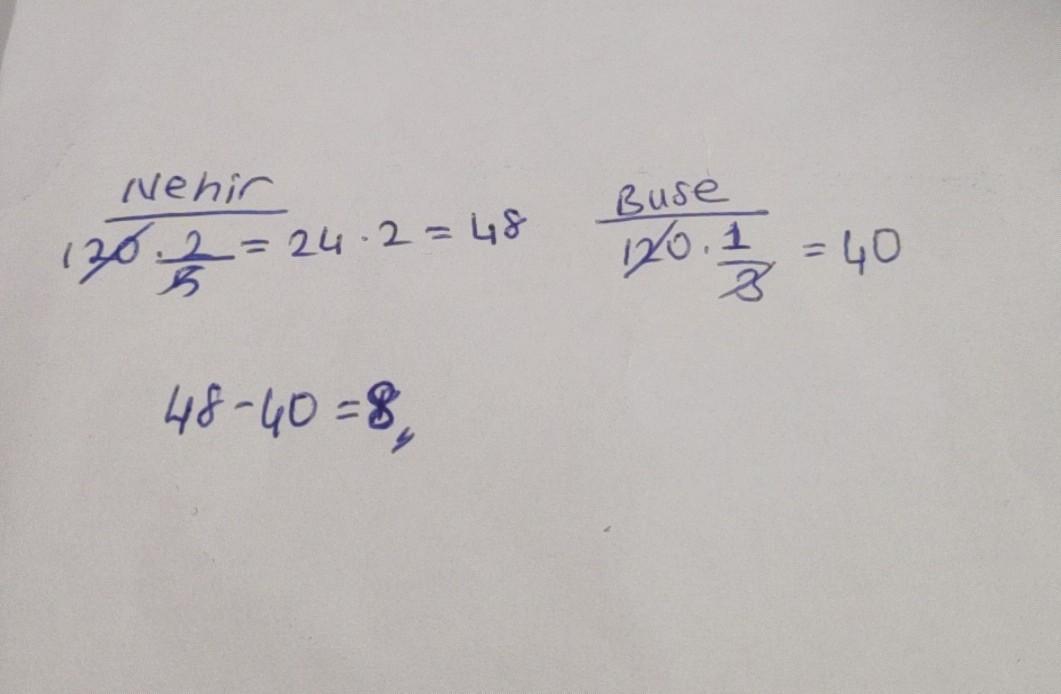 Nehir
120 . 2/5 = 24 . 2 = 48
Buse
120 . 1/3 = 40
48 - 40 = 8,,